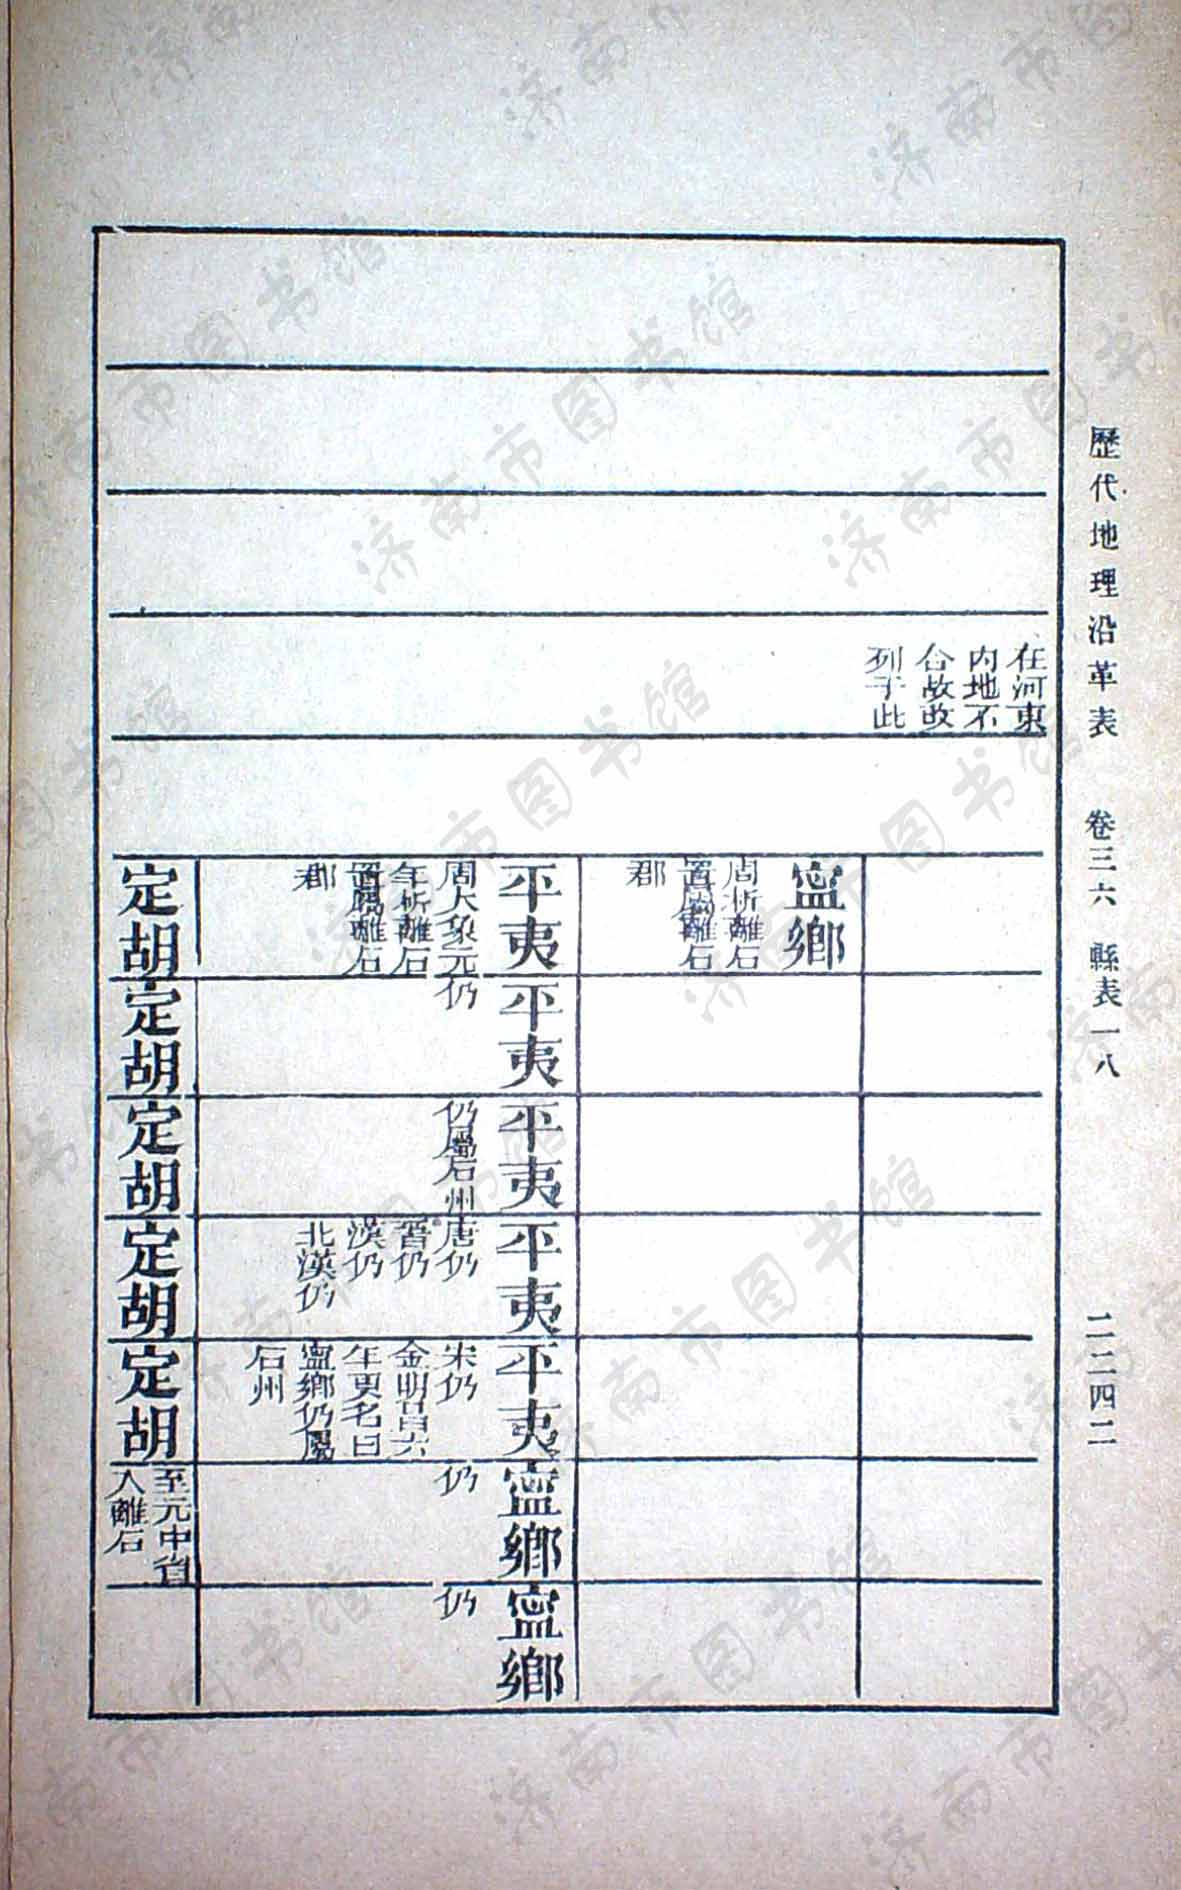 歷代地理沿革表 卷三六 縣表一八 二二四二
在河東
內地不
合故改
列于此
甯鄉
周析離石
置屬離石
郡
平夷
周大象元
年析離石
置屬離石
郡
平夷
仍
平夷
仍屬石州
平夷
唐仍
晉仍
漢仍
北漢仍
平夷
宋仍
金明昌六
年更名曰
甯鄉仍屬
石州
甯鄉
仍
甯鄉
仍
定胡
定胡
定胡
定胡
定胡
至元中省
入離石
济南市图书馆